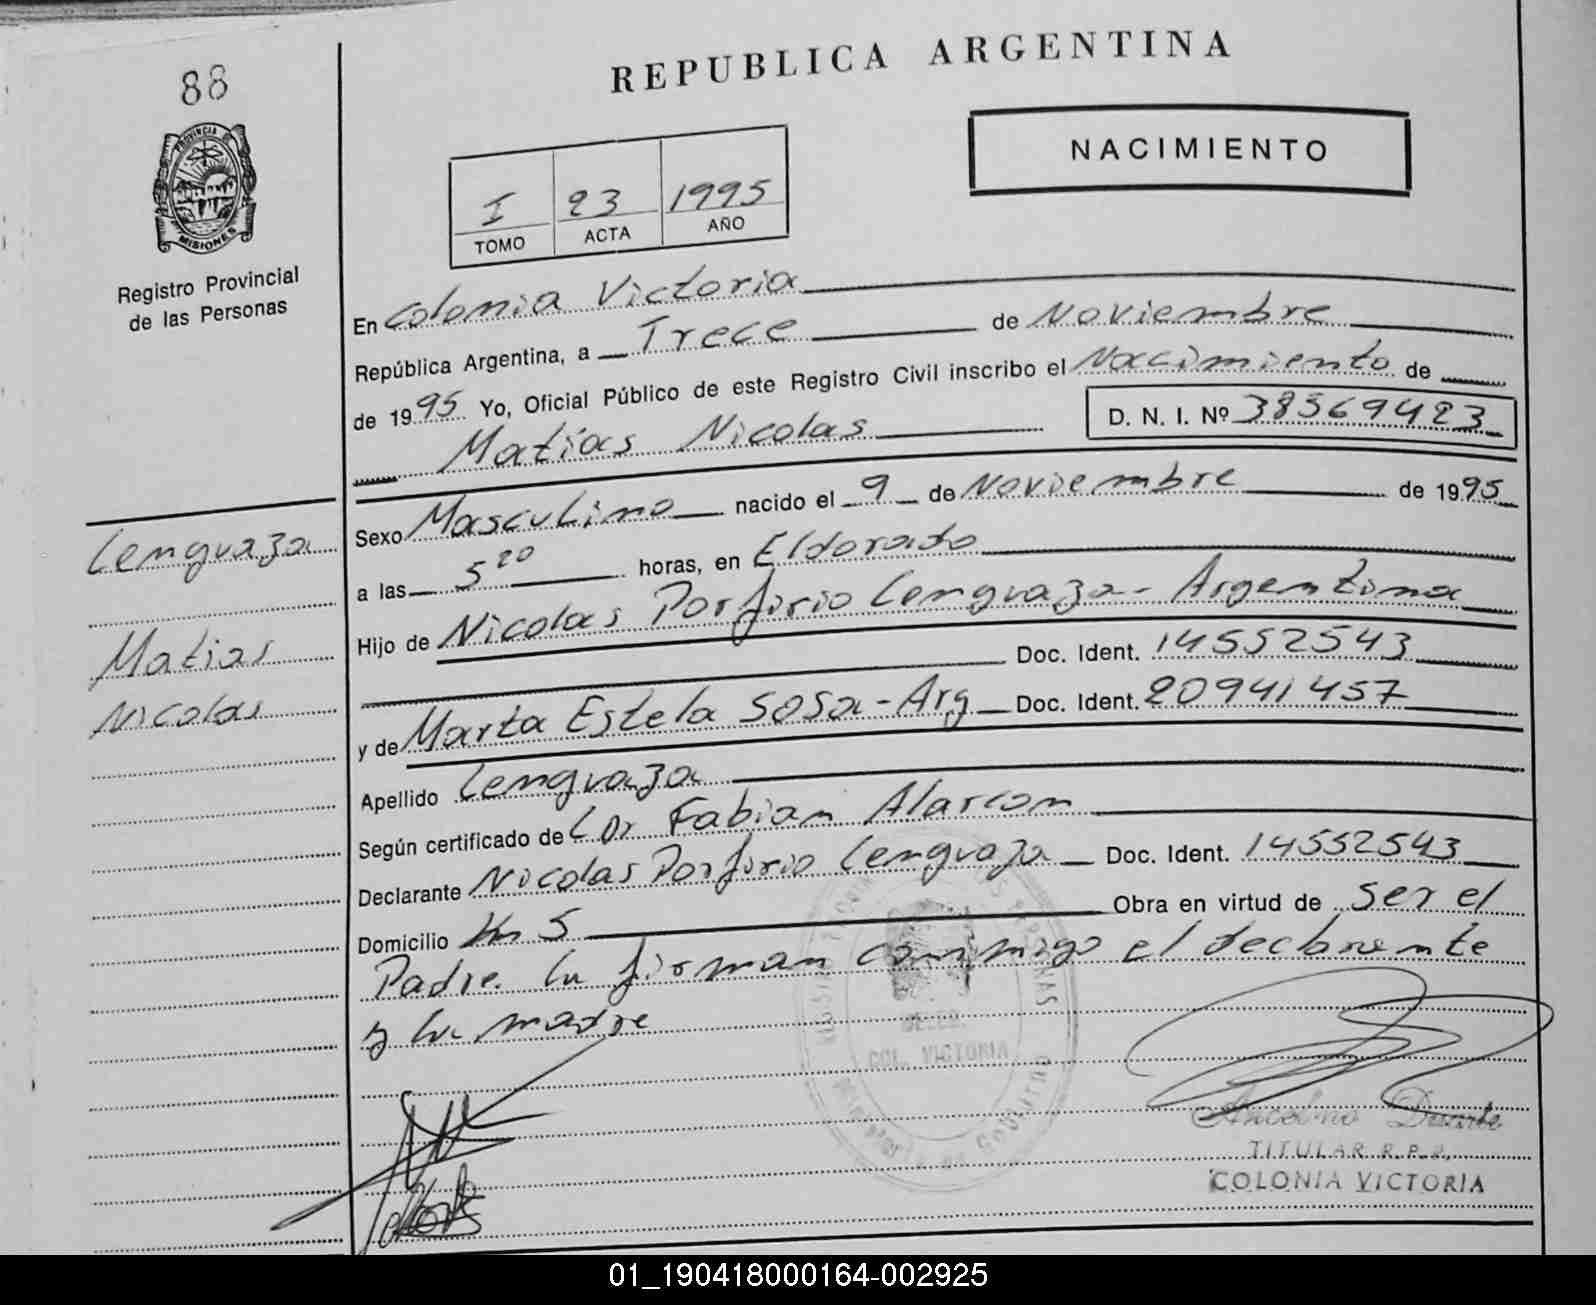 88
REPUBLICA ARGENTINA
NACIMIENTO
PROVINCIA
MISIONES
Registro Provincial
de las Personas
I 23 1995
TOMO ACTA AÑO
En Colonia Victoria
República Argentina, a Trece de Noviembre
de 1995 Yo, Oficial Público de este Registro Civil inscribo el Nacimiento de
Matías Nicolas D. N. I. Nº 38569423
Sexo Masculino nacido el 9 de Noviembre de 1995
a las 5 20 horas, en Eldorado
Hijo de Nicolas Porfirio Lenguaza - Argentina
Doc. Ident. 14552543
y de Marta Estela Sosa - Arg Doc. Ident. 20941457
Apellido Lenguaza
Según certificado de Dr Fabian Alarcon
Declarante Nicolas Porfirio Lenguaza Doc. Ident. 14552543
Domicilio Km 5 Obra en virtud de Ser el
Padre. Lu firman conmigo el declarante
y la madre
Lenguaza
Matias
Nicolas
DELEG.
COL. VICTORIA
Duarte
TITULAR R.P.P.
COLONIA VICTORIA
01_190418000164-002925